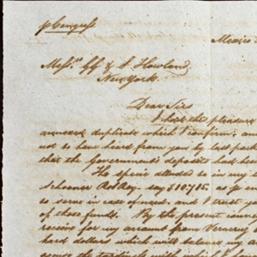 p Congress
Mexico
Messrs. GG & S Howland,
New York.
Dear Sirs
I had the pleasure
annexed duplicate which I confirm, and
not to have heard from you by last pack
that the Governments deposites had been
The specie alluded to in my
Schooner say $10,715. as p
to serve in case of need, and I trust you
of these funds. By the present convey
receive for my account from Veracruz
hard dollars which will balance my a
which I have